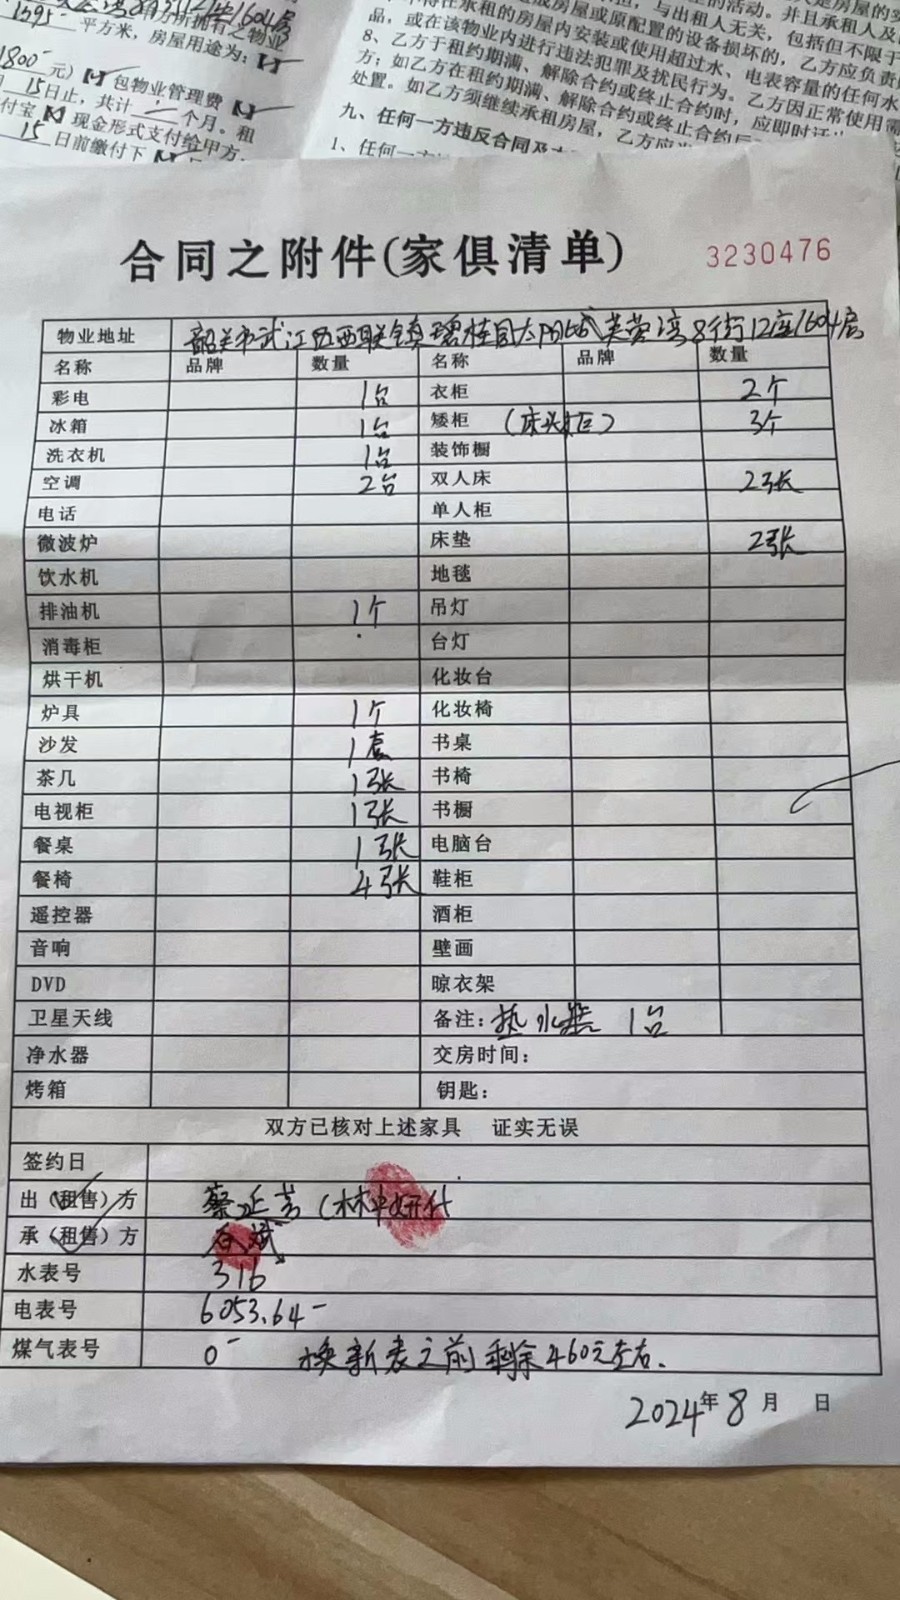 1800 元）【 】包物业管理费【 】
15日止，共计 个月。租
付宝【 】现金形式支付给甲方，
15 日前缴付下
平方米，房屋用途为：【 】
8、乙方于租约期满、解除合约或终止合约时，应即时
处置。如乙方须继续承租房屋，乙方应
九、任何一方违反合同及
1、任何一方
合同之附件(家俱清单) 3230476
物业地址 韶关市武江区西联镇碧桂园太阳城芙蓉湾8街12座1604房
名称 品牌 数量 名称 品牌 数量
彩电 1台 衣柜 2个
冰箱 1台 矮柜 (床头柜) 3个
洗衣机 1台 装饰橱
空调 2台 双人床 2张
电话 单人柜
微波炉 床垫 2张
饮水机 地毯
排油机 1个 吊灯
消毒柜 台灯
烘干机 化妆台
炉具 1个 化妆椅
沙发 1套 书桌
茶几 1张 书椅
电视柜 1张 书橱
餐桌 1张 电脑台
餐椅 4张 鞋柜
遥控器 酒柜
音响 壁画
DVD 晾衣架
卫星天线 备注：热水器 1台
净水器 交房时间：
烤箱 钥匙：
双方已核对上述家具 证实无误
签约日
出（租售）方 蔡
承（租售）方 斌
水表号 316
电表号 6053.64-
煤气表号 0- 换新表之前剩余460元左右.
2024年8月 日